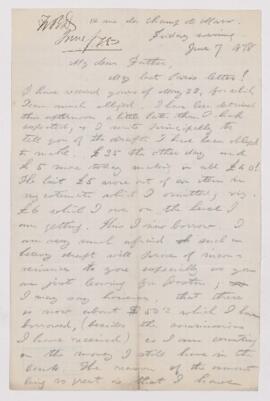 14 rue du Champ de Mars
Friday evening
June 7 1878
June/78
My dear Father,
My last Paris letter!
I have received yours of May 28, for which
I am much obliged. I have been detained
this afternoon a little later than I had
expected, so I write principally to
tell you of the drafts I have been obliged
to make. £35 the other day and
£5 more today making in all £40!
The last £5 arose out of an item in
my estimate which I omitted, viz
£6 which I owe on the
am getting. This I now borrow. I
am very much afraid such an
heavy draft will prove of incon-
venience to you especially as you
are just leaving for
I may say however, that there
is now about £50 which I have
borrowed, (besides the commissions
I have received) as I am counting
on the money I still have in the
bank. The reason of the amount
being so great is that I have